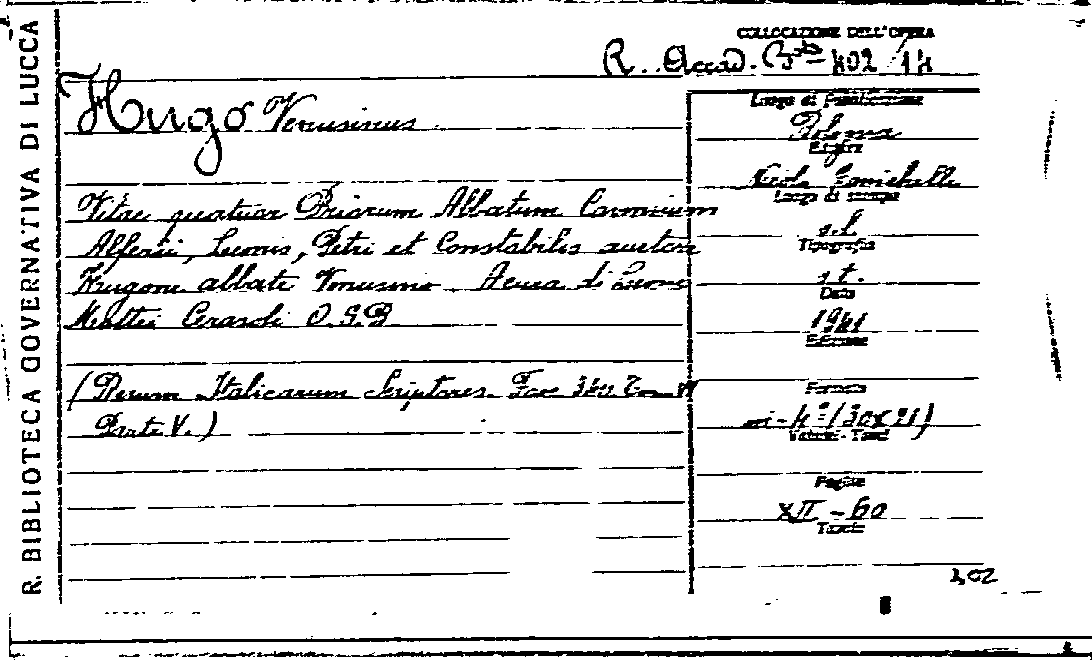 R. BIBLIOTECA GOVERNATIVA DI LUCCA
COLLOCAZIONE DELL'OPERA
R. Accad. 402/14
Hugo Venusinus
Vitae quatuor Priorum Abbatum Cavensium
Alferii, Leonis, Petri et Constabilis auctore
Hugone abbate Venusino. A cura di Leone
Mattei Cerasoli O.S.B
(Rerum Italicarum Scriptores. Fasc. Tom. VI
Parte V.)
Luogo di Pubblicazione
Bologna
Editore
Nicola Zanichelli
Luogo di stampa
s.l.
Tipografia
s.t.
Data
1941
Edizione
Formato
in-4° (30x21)
Volumi - Tomi
Pagine
XII - 60
Tavole
402